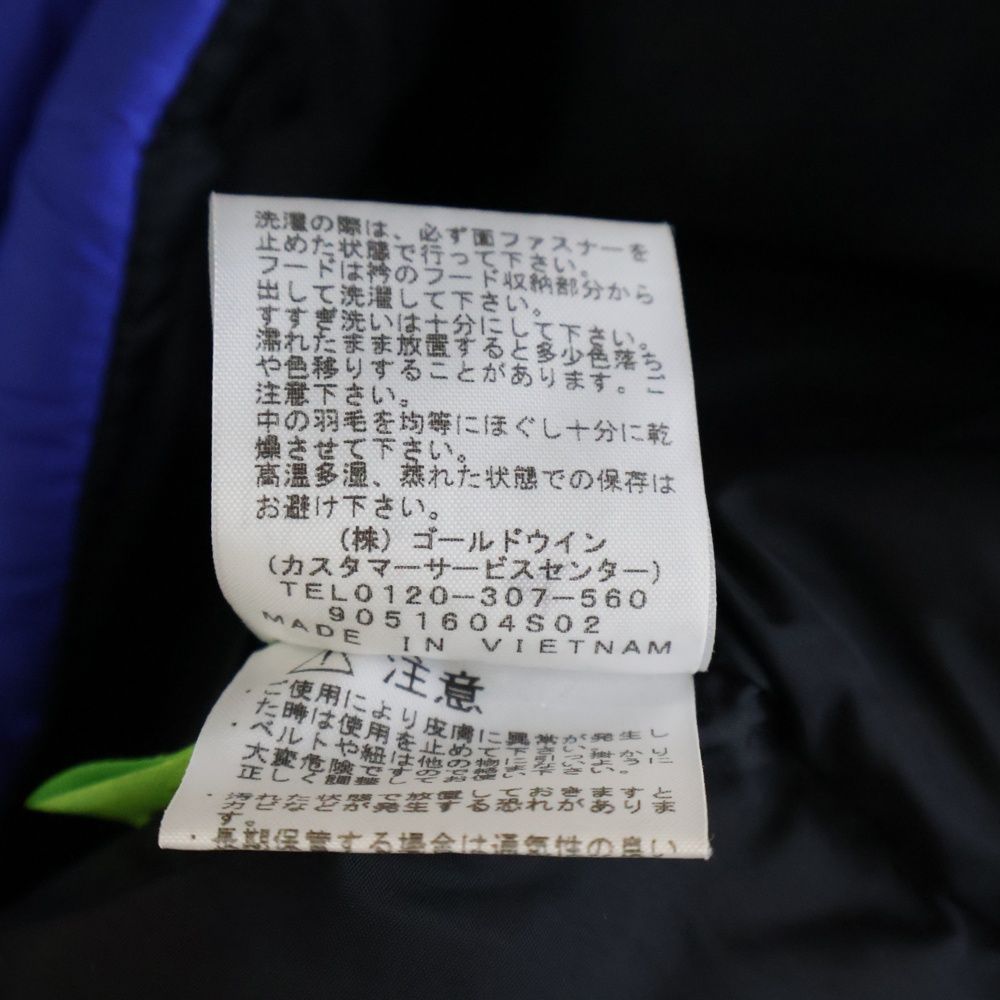 洗濯の際は、必ず面ファスナーを
止めた状態で行って下さい。
フードは衿のフード収納部分から
出して洗濯して下さい。
すすぎ洗いは十分にして下さい。
濡れたまま放置すると多少色落ち
や色移りすることがあります。ご
注意下さい。
中の羽毛を均等にほぐし十分に乾
燥させて下さい。
高温多湿、蒸れた状態での保存は
お避け下さい。
(株) ゴールドウイン
(カスタマーサービスセンター)
TEL0120-307-560
9051604S02
MADE IN VIETNAM
注意
ご使用により皮膚に異常が発生し
た時は使用を止めて下さい。
ベルトや紐は他の物に
大変危険です
正しく調整して
長期保管する場合は通気性の良い